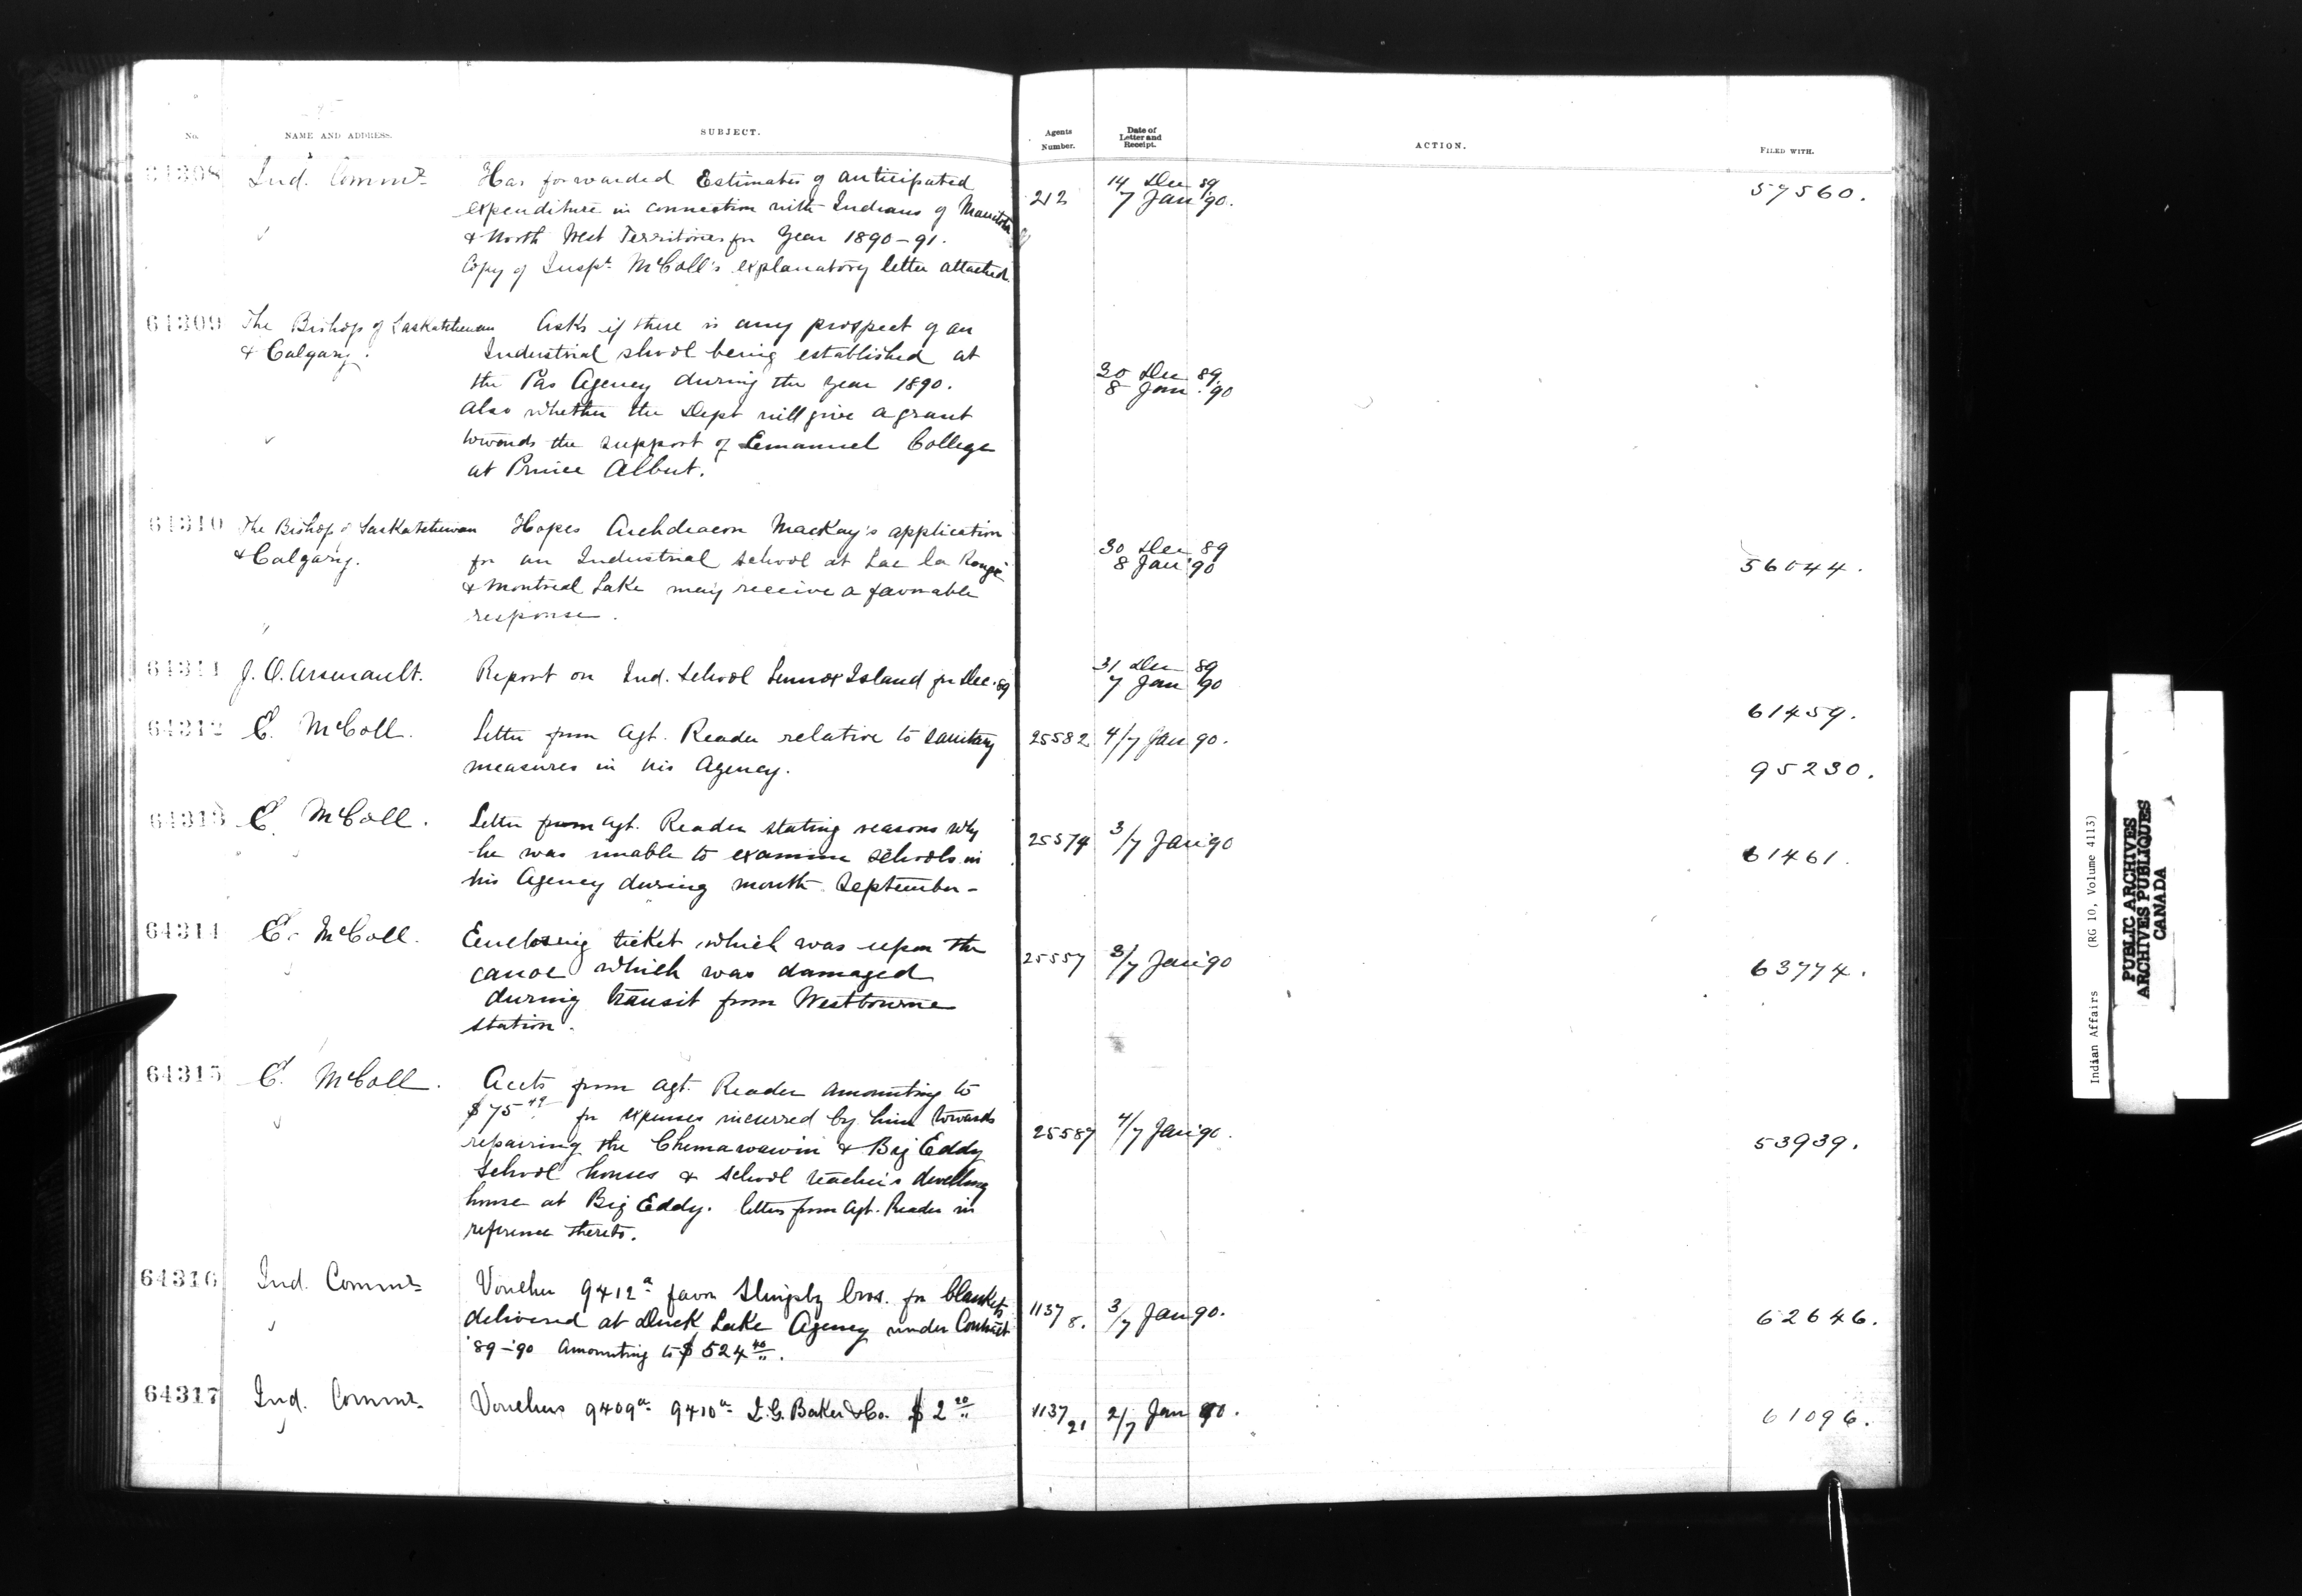 No. NAME AND ADDRESS. SUBJECT. Agents Number. Date of Letter and Receipt. ACTION. FILED WITH.
64308 Ind. Commr Has forwarded Estimates of anticipated 212 14 Dec 89 57560.
expenditure in connection with Indians of Manitoba 7 Jan '90.
& North West Territories for Year 1890-91.
Copy of Inspr. McColl's explanatory letter attached.
64309 The Bishop of Saskatchewan Asks if there is any prospect of an
& Calgary. Industrial school being established at
the Pas Agency during the year 1890. 30 Dec 89
Also whether the Dept will give a grant 8 Jan. 90
towards the support of Emanuel College
at Prince Albert.
64310 The Bishop of Saskatchewan Hopes Archdeacon MacKay's application 30 Dec 89
& Calgary. for an Industrial school at Lac la Ronge 8 Jan 90 56044.
& Montreal Lake may receive a favorable
response.
64311 J. O. Arsenault. Report on Ind. School Lennox Island for Dec. 89 31 Dec 89
7 Jan 90
61459.
64312 E. McColl. Letter from Agt. Reader relative to sanitary 25582 4/7 Jan 90.
measures in his Agency. 95230.
64313 E. McColl. Letter from Agt. Reader stating reasons why 25574 3/7 Jan '90
he was unable to examine schools in 61461.
his Agency during month September-
64314 E. McColl. Enclosing ticket which was upon the 25557 3/7 Jan '90
canoe which was damaged 63774.
during transit from Westbourne
station.
64315 E. McColl. Accts from Agt. Reader amounting to
$75.49 for expenses incurred by him towards
repairing the Chemawawin & Big Eddy 25587 4/7 Jan '90. 53939.
school houses & school teacher's dwelling
house at Big Eddy. letters from Agt. Reader in
reference thereto.
64316 Ind. Commr Voucher 9412a favor Slingsby bros. for blankets
delivered at Duck Lake Agency under Contract 1137 8. 3/7 Jan 90. 62646.
'89-'90 amounting to $524 40.
64317 Ind. Commr Vouchers 9409a 9410a I. G. Baker & Co. $2 20 1137 21 2/7 Jan 90. 61096.
Indian Affairs (RG 10, Volume 4113)
PUBLIC ARCHIVES
ARCHIVES PUBLIQUES
CANADA